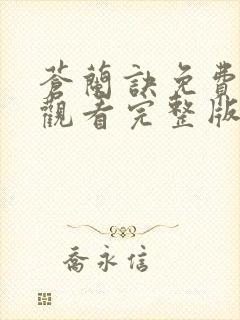 蒼蘭訣免費
觀看完整版
喬永信